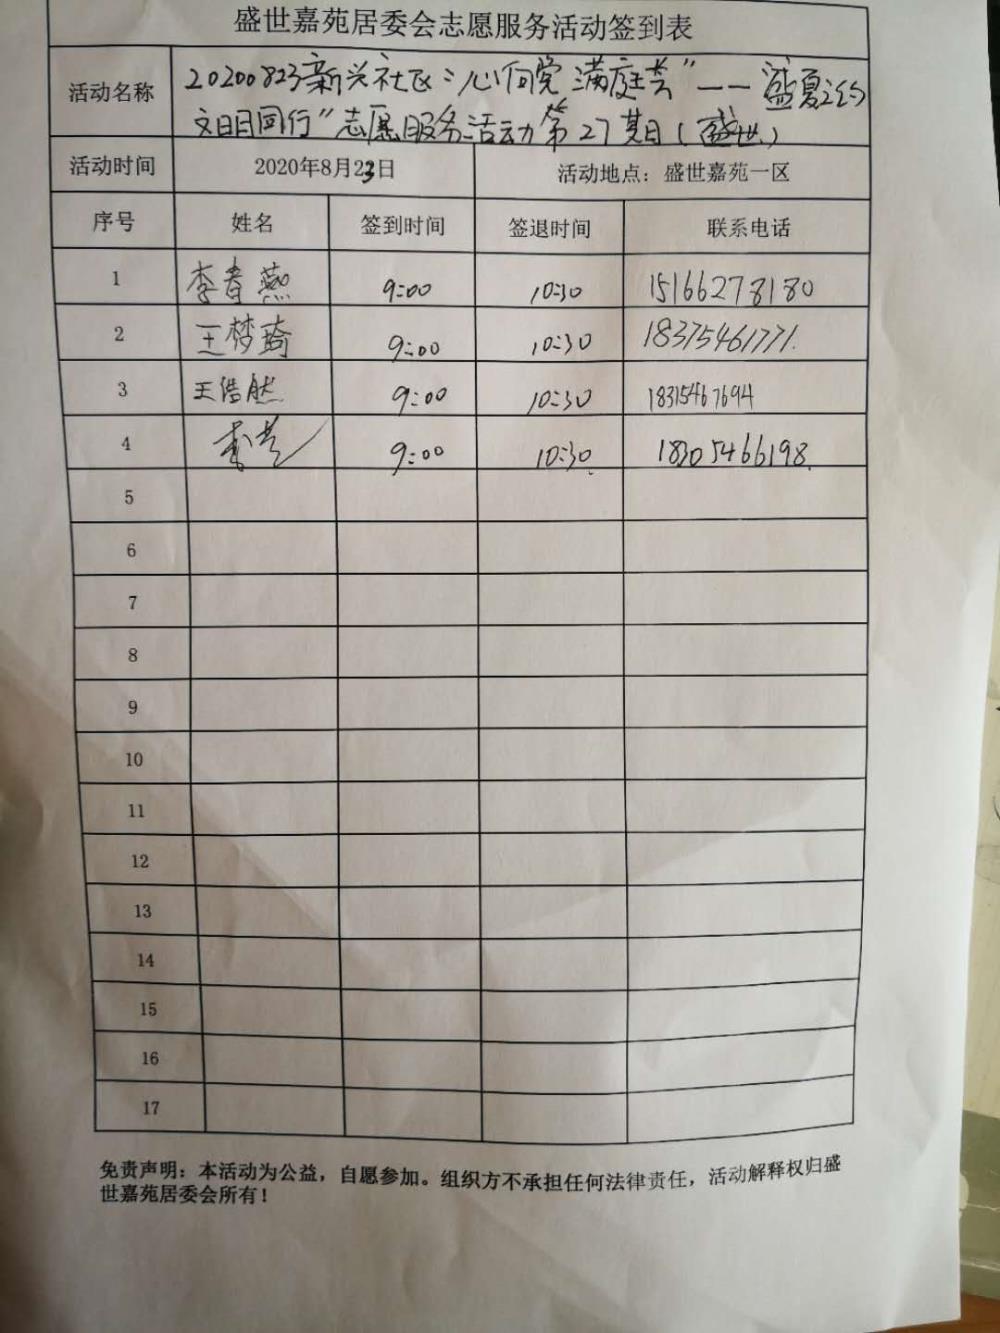 盛世嘉苑居委会志愿服务活动签到表
活动名称 20200823新兴社区“心向党 满庭芳”——盛夏之约
文明同行”志愿服务活动第27期(盛世)
活动时间 2020年8月23日 活动地点：盛世嘉苑一区
序号 姓名 签到时间 签退时间 联系电话
1 李春燕 9:00 10:30 15166278180
2 王梦琦 9:00 10:30 18375461771.
3 王浩然 9:00 10:30 18315467694
4 李 9:00 10:30. 18305466198.
5
6
7
8
9
10
11
12
13
14
15
16
17
免责声明：本活动为公益，自愿参加。组织方不承担任何法律责任，活动解释权归盛
世嘉苑居委会所有！